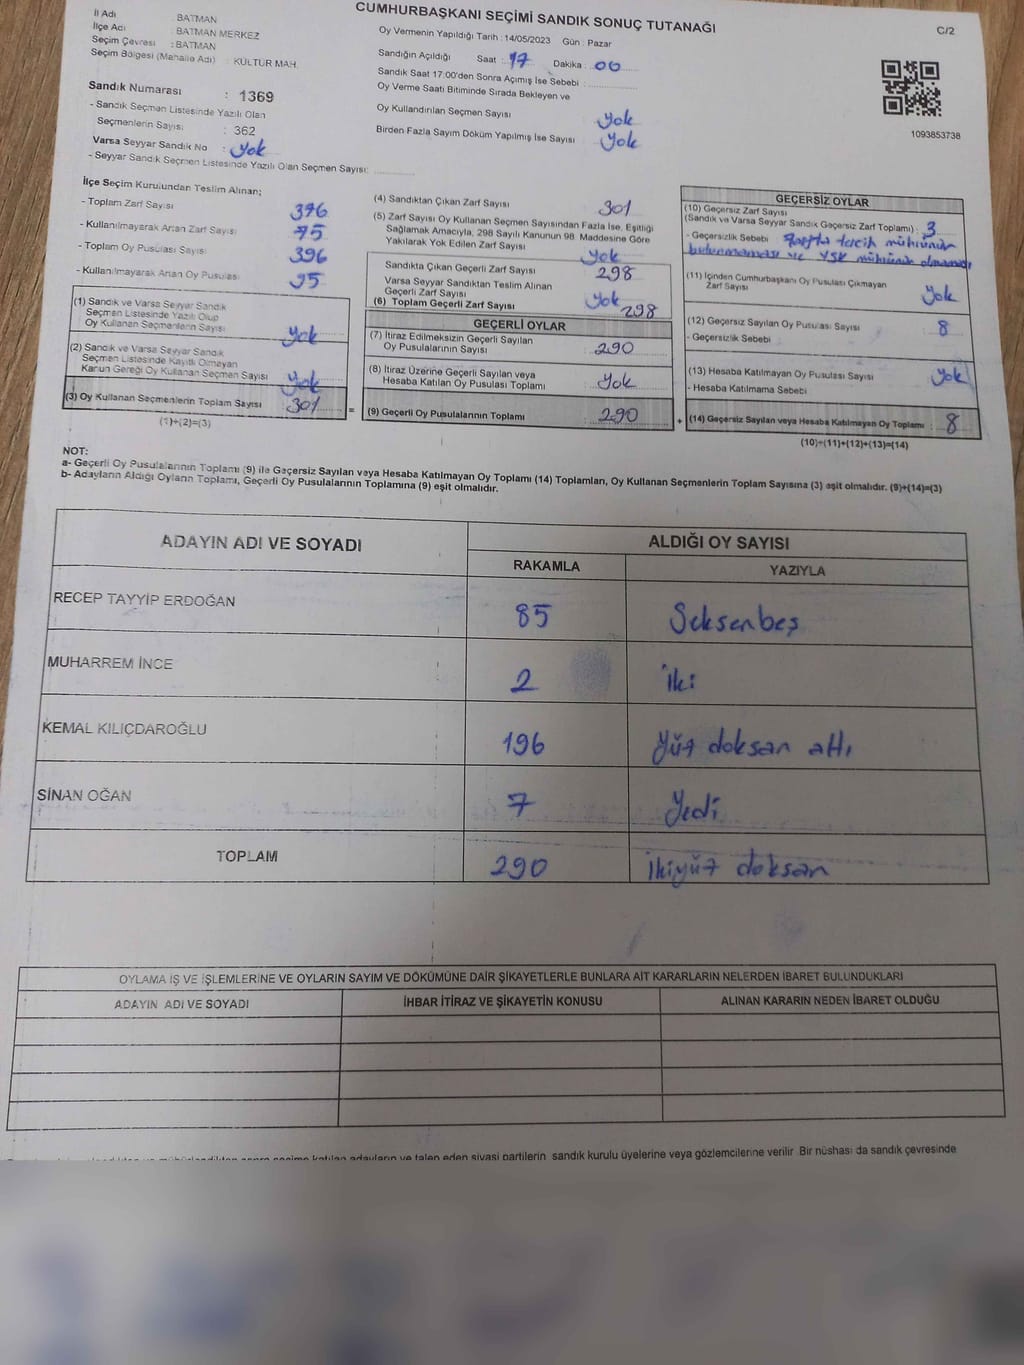 CUMHURBAŞKANI SEÇİMİ SANDIK SONUÇ TUTANAĞI
C/2
İl Adı : BATMAN
İlçe Adı : BATMAN MERKEZ
Seçim Çevresi : BATMAN
Seçim Bölgesi (Mahalle Adı) : KÜLTÜR MAH.
Sandık Numarası : 1369
- Sandık Seçmen Listesinde Yazılı Olan
Seçmenlerin Sayısı : 362
Varsa Seyyar Sandık No : Yok
- Seyyar Sandık Seçmen Listesinde Yazılı Olan Seçmen Sayısı:
Oy Vermenin Yapıldığı Tarih : 14/05/2023 Gün : Pazar
Sandığın Açıldığı Saat : 17 Dakika : 00
Sandık Saat 17:00'den Sonra Açımış İse Sebebi :
Oy Verme Saati Bitiminde Sırada Bekleyen ve
Oy Kullandırılan Seçmen Sayısı Yok
Birden Fazla Sayım Döküm Yapılmış İse Sayısı Yok
1093853738
İlçe Seçim Kurulundan Teslim Alınan;
- Toplam Zarf Sayısı 376
- Kullanılmayarak Artan Zarf Sayısı 75
- Toplam Oy Pusulası Sayısı 396
- Kullanılmayarak Artan Oy Pusulası 95
(1) Sandık ve Varsa Seyyar Sandık
Seçmen Listesinde Yazılı Olup
Oy Kullanan Seçmenlerin Sayısı Yok
(2) Sandık ve Varsa Seyyar Sandık
Seçmen Listesinde Kayıtlı Olmayan
Kanun Gereği Oy Kullanan Seçmen Sayısı Yok
(3) Oy Kullanan Seçmenlerin Toplam Sayısı 301 =
(1)+(2)=(3)
(4) Sandıktan Çıkan Zarf Sayısı 301
(5) Zarf Sayısı Oy Kullanan Seçmen Sayısından Fazla İse, Eşitliği
Sağlamak Amacıyla, 298 Sayılı Kanunun 98. Maddesine Göre
Yakılarak Yok Edilen Zarf Sayısı Yok
Sandıkta Çıkan Geçerli Zarf Sayısı 298
Varsa Seyyar Sandıktan Teslim Alınan
Geçerli Zarf Sayısı Yok
(6) Toplam Geçerli Zarf Sayısı 298
GEÇERLİ OYLAR
(7) İtiraz Edilmeksizin Geçerli Sayılan
Oy Pusulalarının Sayısı 290
(8) İtiraz Üzerine Geçerli Sayılan veya
Hesaba Katılan Oy Pusulası Toplamı Yok
(9) Geçerli Oy Pusulalarının Toplamı 290 +
GEÇERSİZ OYLAR
(10) Geçersiz Zarf Sayısı
(Sandık ve Varsa Seyyar Sandık Geçersiz Zarf Toplamı) : 3
- Geçersizlik Sebebi Zarfta tercih mühürünün
bulunmaması ve YSK mühürün olmaması
(11) İçinden Cumhurbaşkanı Oy Pusulası Çıkmayan
Zarf Sayısı Yok
(12) Geçersiz Sayılan Oy Pusulası Sayısı 8
- Geçersizlik Sebebi
(13) Hesaba Katılmayan Oy Pusulası Sayısı Yok
- Hesaba Katılmama Sebebi
(14) Geçersiz Sayılan veya Hesaba Katılmayan Oy Toplamı : 8
(10)+(11)+(12)+(13)=(14)
NOT:
a- Geçerli Oy Pusulalarının Toplamı (9) ile Geçersiz Sayılan veya Hesaba Katılmayan Oy Toplamı (14) Toplamları, Oy Kullanan Seçmenlerin Toplam Sayısına (3) eşit olmalıdır. (9)+(14)=(3)
b- Adayların Aldığı Oyların Toplamı, Geçerli Oy Pusulalarının Toplamına (9) eşit olmalıdır.
ADAYIN ADI VE SOYADI
ALDIĞI OY SAYISI
RAKAMLA YAZIYLA
RECEP TAYYİP ERDOĞAN 85 Seksenbeş
MUHARREM İNCE 2 İki
KEMAL KILIÇDAROĞLU 196 Yüz doksan altı
SİNAN OĞAN 7 Yedi
TOPLAM 290 İkiyüz doksan
OYLAMA İŞ VE İŞLEMLERİNE VE OYLARIN SAYIM VE DÖKÜMÜNE DAİR ŞİKAYETLERLE BUNLARA AİT KARARLARIN NELERDEN İBARET BULUNDUKLARI
ADAYIN ADI VE SOYADI İHBAR İTİRAZ VE ŞİKAYETİN KONUSU ALINAN KARARIN NEDEN İBARET OLDUĞU
seçime katılan adayların ve talep eden siyasi partilerin sandık kurulu üyelerine veya gözlemcilerine verilir. Bir nüshası da sandık çevresinde